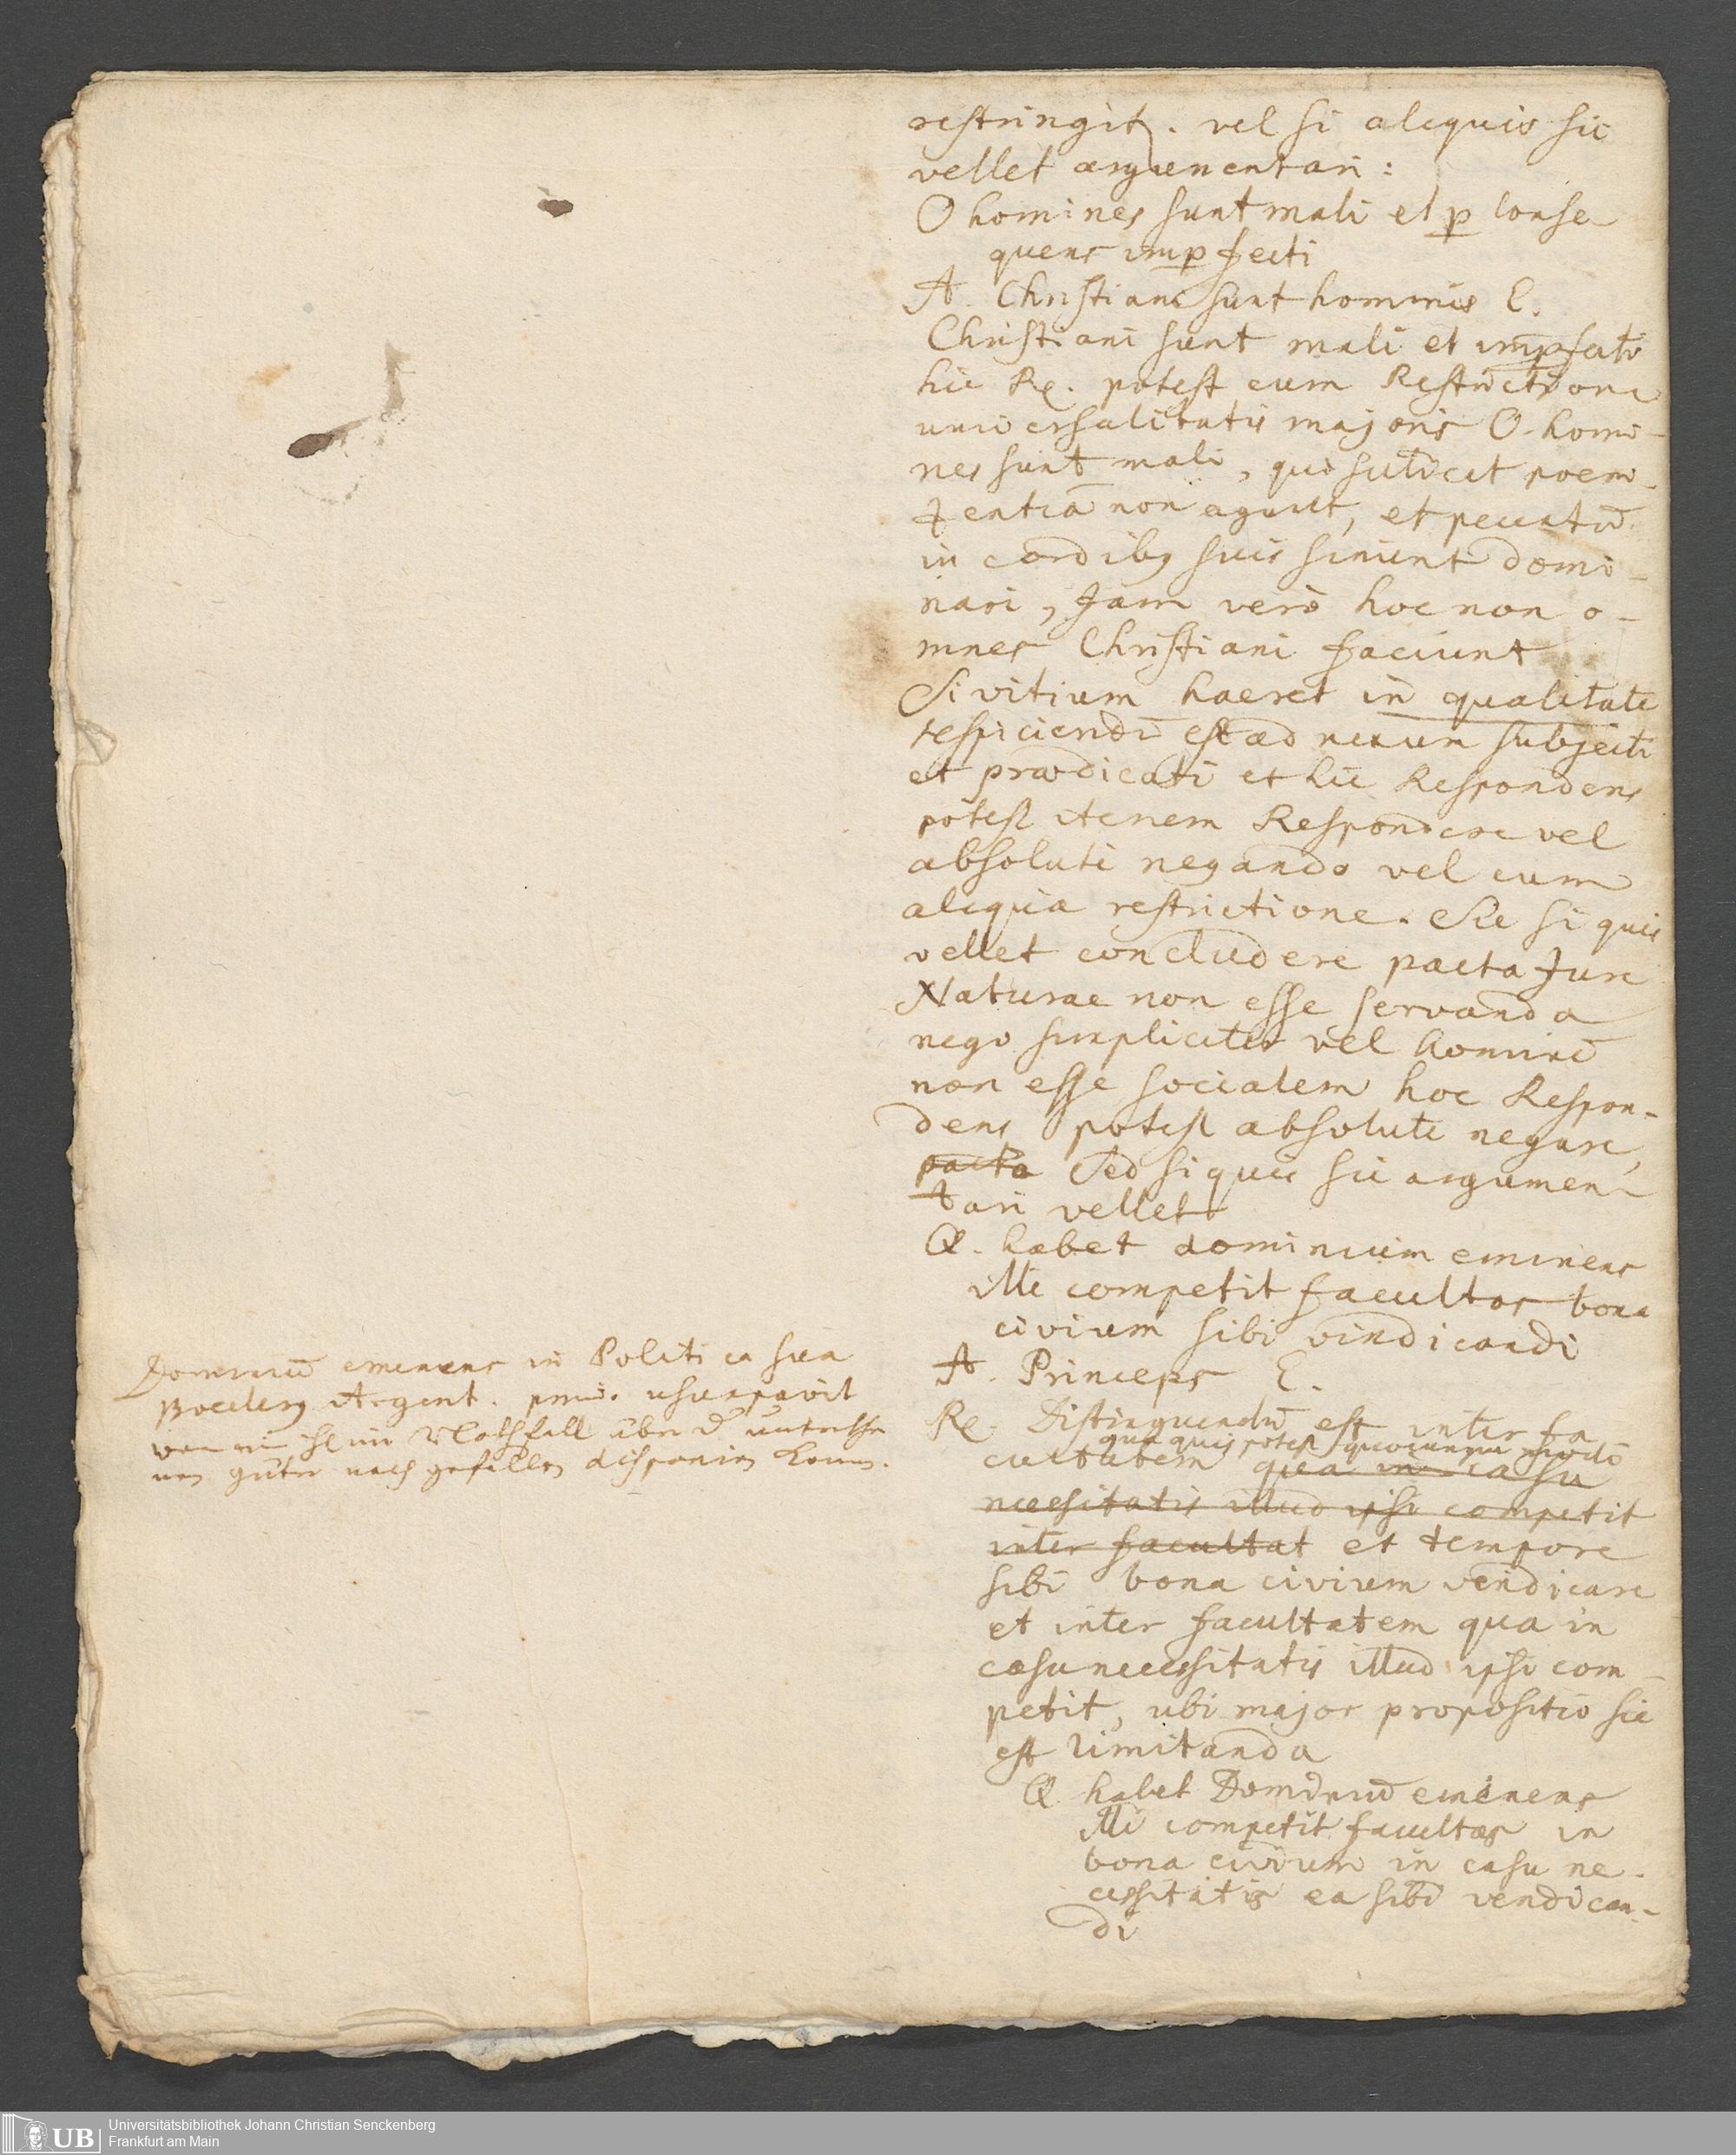 restringit. vel si aliquis sic
vellet argumentari:
O homines sunt mali et p conse
quens imp fecti
A. Christiani sunt homines E.
Christiani sunt mali et impfecti
hic Re. potest cum Restrictione
universalitatis majoris O. homi-
nes sunt mali, qui scilicet poeni-
tentiā non agunt, et peccatū
in cordibq suis sinunt domi-
nari, Jam verò hoc non o-
mnes Christiani faciunt
Si vitium haeret in qualitate
respiciendū est ad nexum subjecti
et praedicati et hic Respondens
potest Respondere vel
absolute negando vel cum
aliqua restrictione. Sic si quis
vellet concludere pacta Jure
Naturae non esse servanda
nego simpliciter vel hominē
non esse socialem hoc Respon-
dens potest absolute negare,
pacta Sed si quis sic argumen-
tari vellet
Q. habet dominium eminens
illi competit facultas bona
civium sibi vindicandi
A. Princeps E.
Re. Distinguendū est inter fa
qua quis potest quocunque modo
cultatem qua in casu
necessitatis illud ipsi competit
inter facultat et tempore
sibi bona civium vendicare
et inter facultatem qua in
casu necessitatis illud ipsi com-
petit, ubi major propositio sic
est limitanda
Q habet Dominiū eminens
illi competit facultas in
bona civium in casu ne-
cessitatis ea sibi vendican-
di
Dominiū eminens in Politica sua
Boeclerq Argent. usurpavit
Nothfall über
güter nach gefallen disponiren
UB
Universitätsbibliothek Johann Christian Senckenberg
Frankfurt am Main